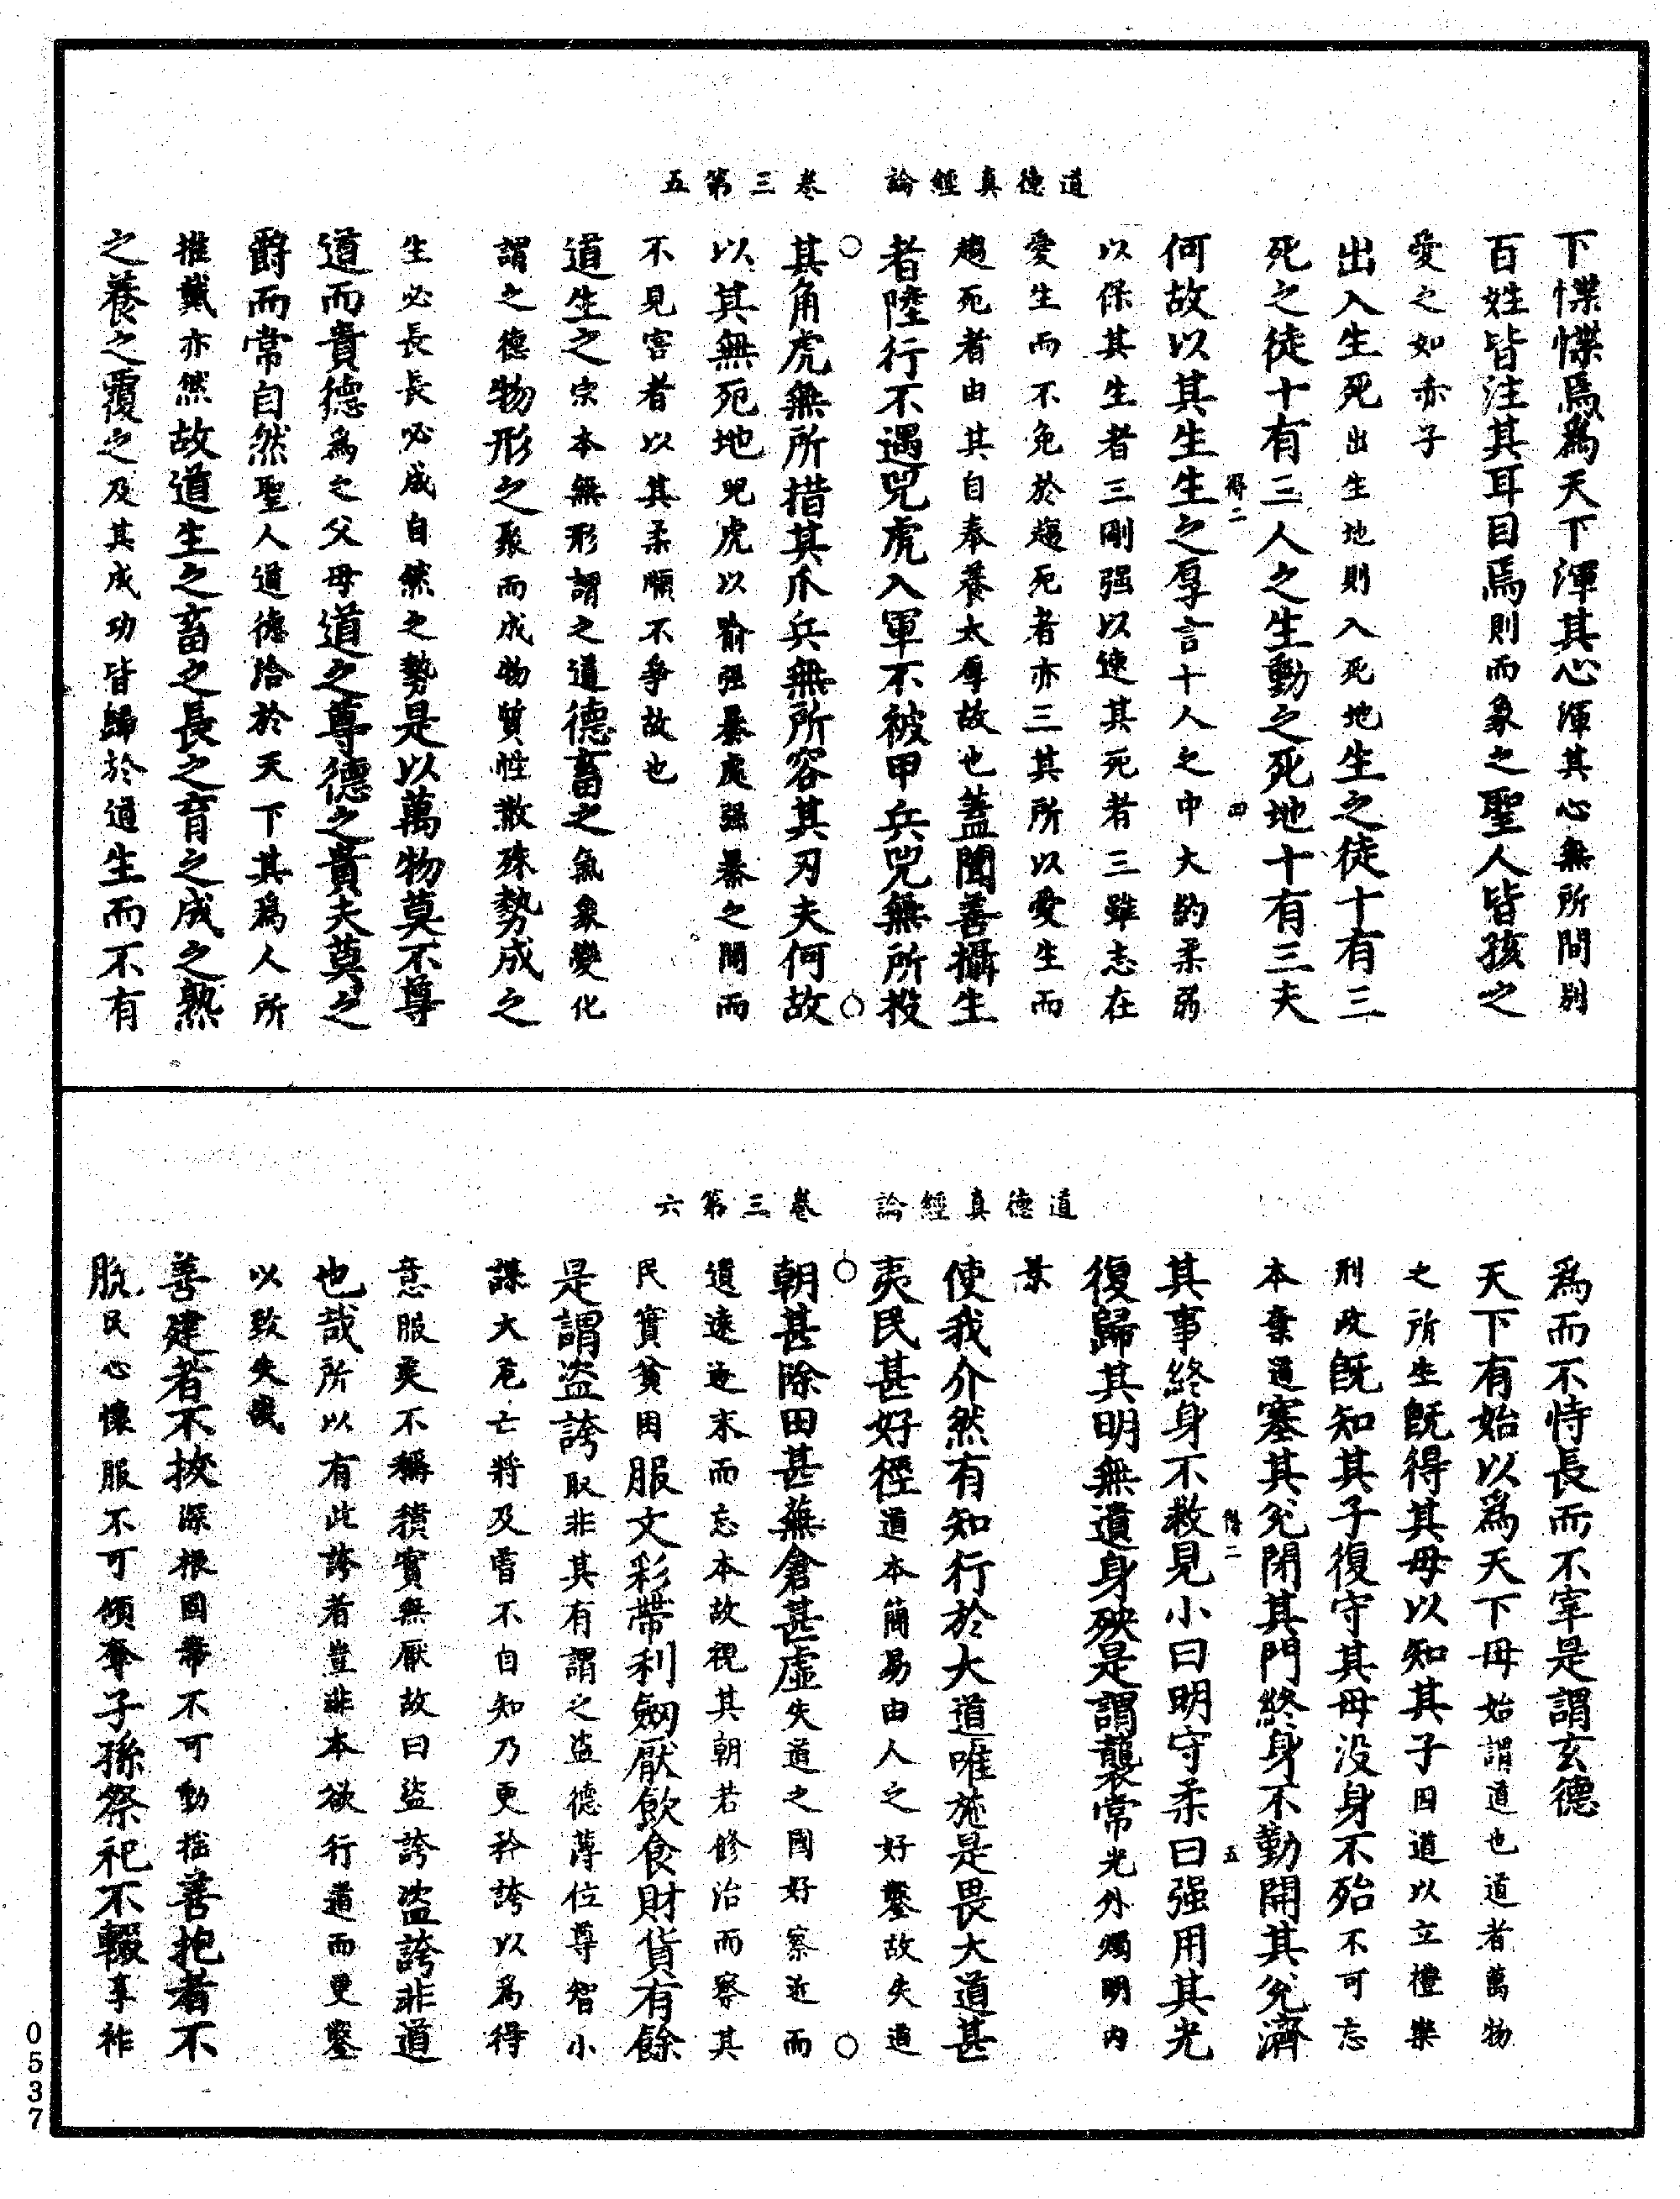 道德真經論　卷三第五
下惵惵焉爲天下渾其心渾其心無所間別
百姓皆注其耳目焉則而象之聖人皆孩之
愛之如赤子
出入生死出生地則入死地生之徒十有三
死之徒十有三人之生動之死地十有三夫
得二　四
何故以其生生之厚言十人之中大約柔弱
以保其生者三剛强以速其死者三雖志在
愛生而不免於趨死者亦三其所以愛生而
趨死者由其自奉養太厚故也蓋聞善攝生
者陸行不遇兕虎入軍不被甲兵兕無所投
其角虎無所措其爪兵無所容其刃夫何故
以其無死地兕虎以喻强暴處强暴之間而
不見害者以其柔順不爭故也
道生之宗本無形謂之道德畜之氣象變化
謂之德物形之聚而成物質性散殊勢成之
生必長長必成自然之勢是以萬物莫不尊
道而貴德爲之父母道之尊德之貴夫莫之
爵而常自然聖人道德洽於天下其爲人所
推戴亦然故道生之畜之長之育之成之熟
之養之覆之及其成功皆歸於道生而不有
道德真經論　卷三第六
爲而不恃長而不宰是謂玄德
天下有始以爲天下母始謂道也道者萬物
之所生旣得其母以知其子因道以立禮樂
刑政旣知其子復守其母没身不殆不可忘
本棄道塞其兌閉其門終身不勤開其兌濟
得二　五
其事終身不救見小曰明守柔曰强用其光
復歸其明無遺身殃是謂襲常光外燭明内
景
使我介然有知行於大道唯施是畏大道甚
夷民甚好徑道本簡易由人之好鑿故失道
朝甚除田甚蕪倉甚虛失道之國好察近而
遺遠逐末而忘本故視其朝若修治而察其
民實貧困服文彩帶利劔厭飲食財貨有餘
是謂盗誇取非其有謂之盗德薄位尊智小
謀大危亡將及曾不自知乃更矜誇以爲得
意服美不稱積實無厭故曰盗誇盗誇非道
也哉所以有此誇者豈非本欲行道而更鑿
以致失哉
善建者不㧞深根固蔕不可動揺善抱者不
脫民心懷服不可傾奪子孫祭祀不輟享祚
0537